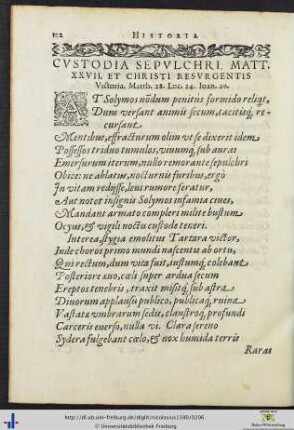 192 HISTORIA
CVSTODIA SEPVLCHRI. MATT.
XXVII. ET CHRISTI RESVRGENTIS
Victoria. Matth. 28. Luc. 24. Ioan. 20.
AT Solymos nõdum penitus formido reliqt,
Dum versant animis secum, tacitisq́; re-
cursant
Mentibus, effracturum olim vt se dixerit idem
Possessos triduo tumulos, viuumq́; sub auras
Emersurum iterum, nullo remorante sepulchri
Obice: ne ablatus, nocturnis furibus, ergo
In vitam redysse, leui rumore feratur,
Aut notet insignis Solymos infamia ciues,
Mandant armato compleri milite bustum
Ocyus, & vigili noctu custode teneri.
Interea stygia emolitus Tartara victor,
Inde choros primo mundi nascentis ab ortu,
Qui rectum, dum vita fuit, iustumq́; colebant
Posteriore æuo, cœli super ardua secum
Ereptos tenebris, traxit misitq́; sub astra
Diuorum applausu publico, publicaq́; ruina
Vastatæ vmbrarum sedis, claustroq́; profundi
Carceris euerso, nulla vi. Clara sereno
Sydera fulgebant cœlo, & nox humida terris
Raras
http://dl.ub.uni-freiburg.de/diglit/nicolasius1590/0206
© Universitätsbibliothek Freiburg
Baden-Württemberg